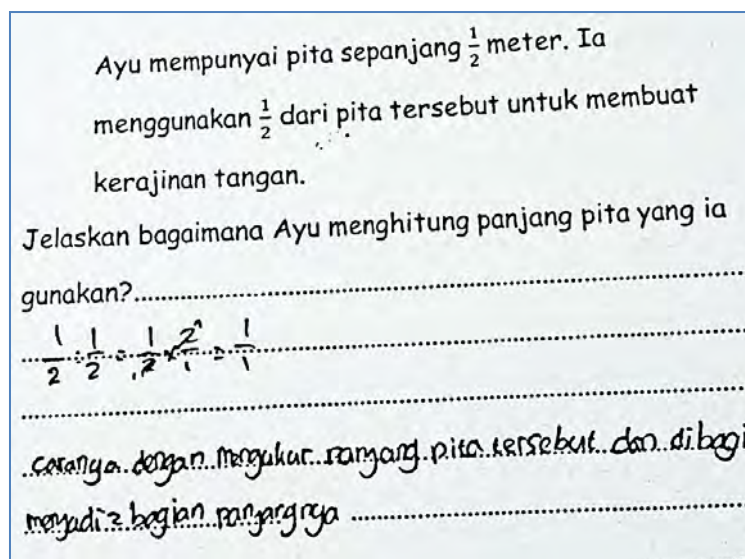 Ayu mempunyai pita sepanjang 1/2 meter. Ia
menggunakan 1/2 dari pita tersebut untuk membuat
kerajinan tangan.
Jelaskan bagaimana Ayu menghitung panjang pita yang ia
gunakan?
1/2 : 1/2 = 1/2 x 2/1 = 1/1
caranya dengan mengukur panjang pita tersebut dan dibagi
menjadi 2 bagian panjangnya